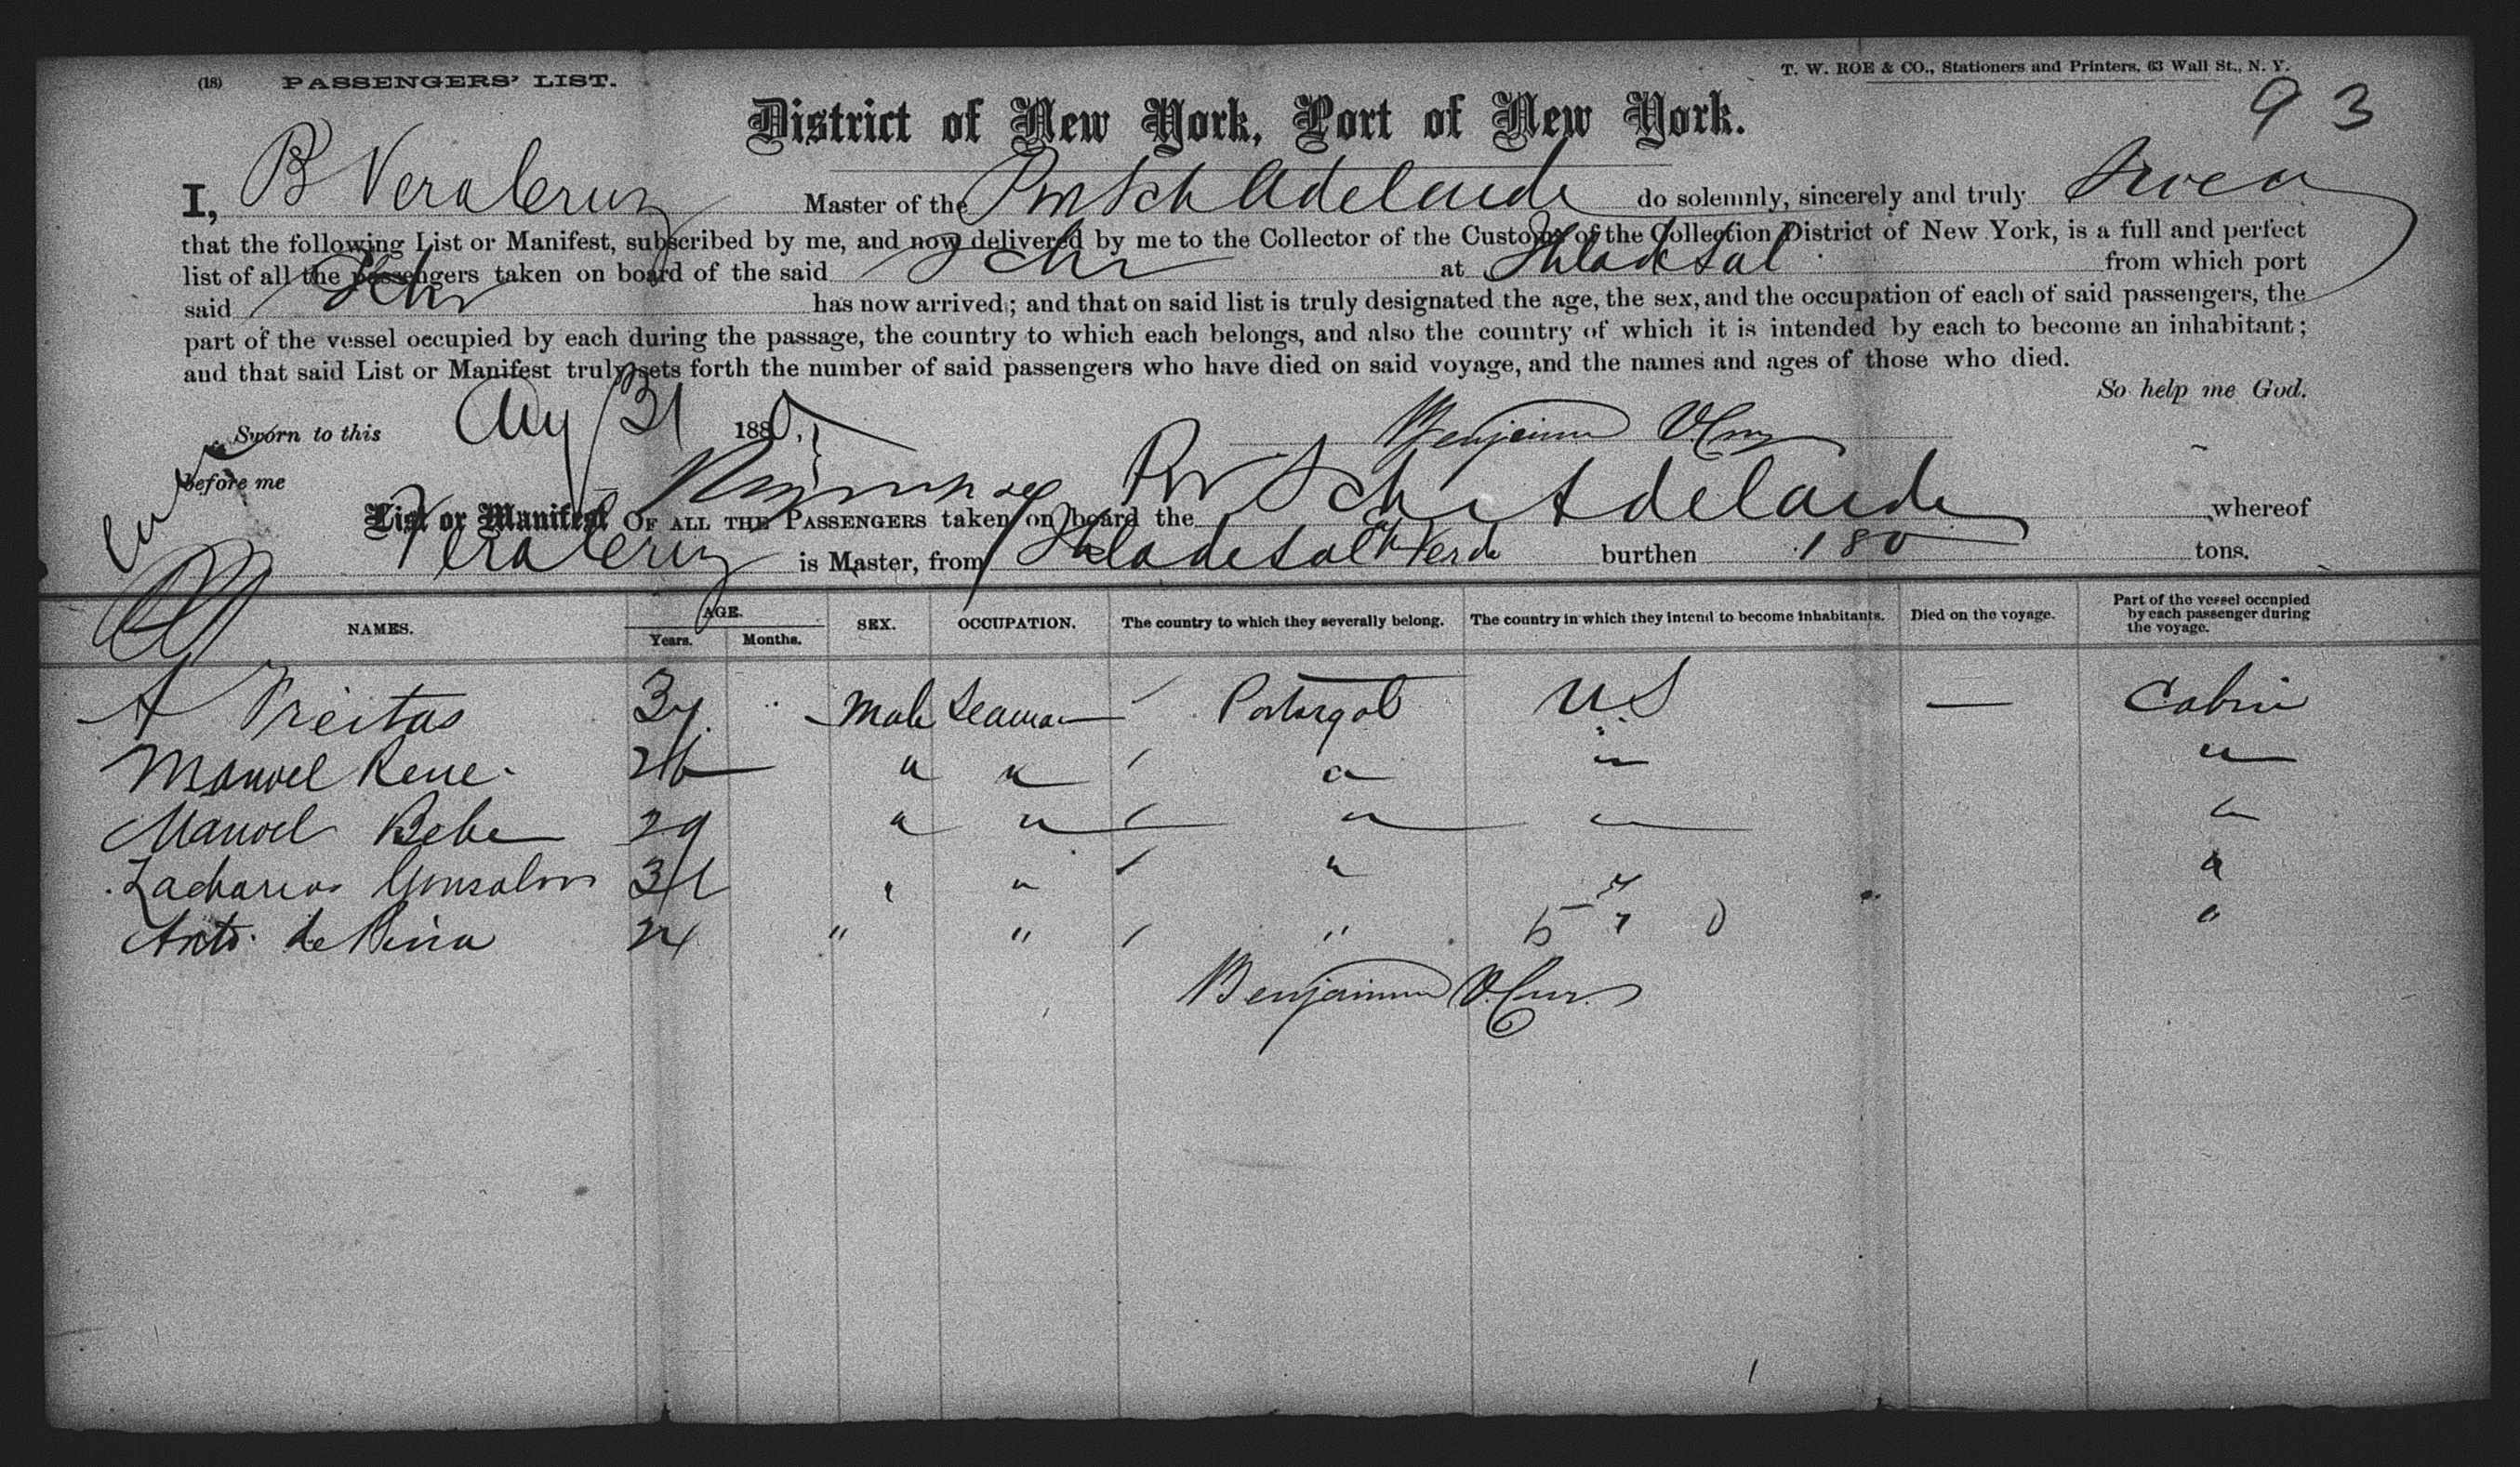 (18) PASSENGERS' LIST.
T. W. ROE & CO., Stationers and Printers, 63 Wall St., N. Y.
93
District of New York, Port of New York.
I, B Vera Cruz Master of the Sch Adelaide do solemnly, sincerely and truly Swear
that the following List or Manifest, subscribed by me, and now delivered by me to the Collector of the Customs of the Collection District of New York, is a full and perfect
list of all the passengers taken on board of the said Schr at Ilha de Sal from which port
said Schr has now arrived; and that on said list is truly designated the age, the sex, and the occupation of each of said passengers, the
part of the vessel occupied by each during the passage, the country to which each belongs, and also the country of which it is intended by each to become an inhabitant;
and that said List or Manifest truly sets forth the number of said passengers who have died on said voyage, and the names and ages of those who died.
So help me God.
Sworn to this Aug 31 188
before me
Benjamin V. Cruz
List or Manifest OF ALL THE PASSENGERS taken on board the Sch Adelaide whereof
Vera Cruz is Master, from Ilha de Sal C Verde burthen 180 tons.
NAMES. AGE. Years. Months. SEX. OCCUPATION. The country to which they severally belong. The country in which they intend to become inhabitants. Died on the voyage. Part of the vessel occupied by each passenger during the voyage.
A Freitas Male Seaman Portugal U S — Cabin
Manoel Rene 26 " " " " "
Manoel Bebe 29 " " " " "
Zacharias Gonsalves 31 " " " " "
Anto. de Pina 24 " " " "
Benjamin V. Cruz